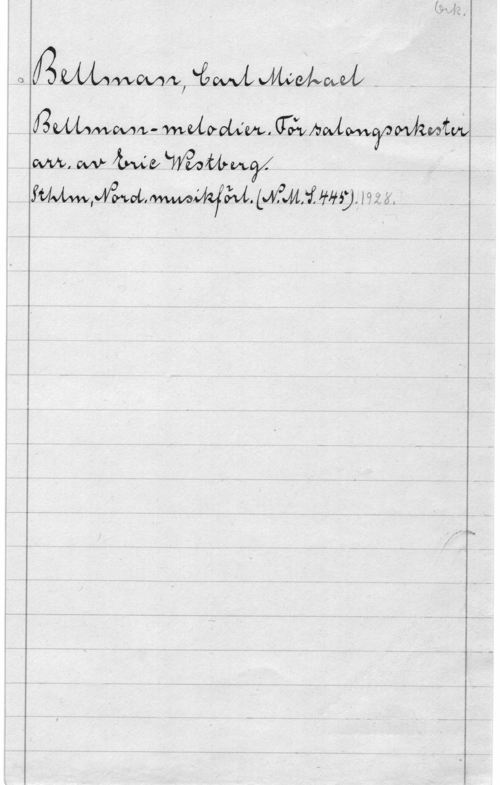 Ork.
Bellman, Carl Michael
Bellman-melodier. För salongsorkester
arr. av Eric Westberg.
Sthlm, Nord. musikförl. (N.M.S. 445). 1928.